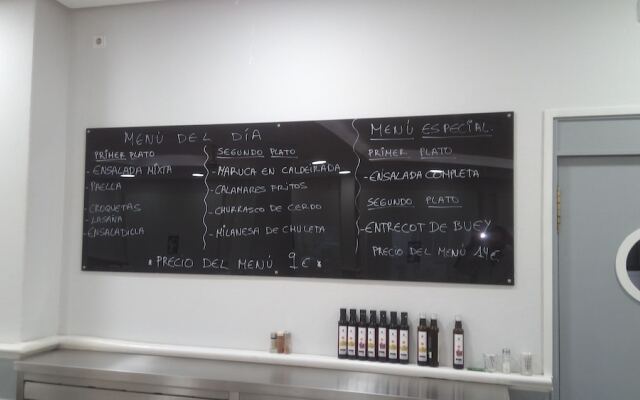 MENÚ DEL DÍA
PRIMER PLATO
- ENSALADA MIXTA
- PAELLA
- CROQUETAS
- LASAÑA
- ENSALADILLA
SEGUNDO PLATO
- MARUCA EN CALDEIRADA
- CALAMARES FRITOS
- CHURRASCO DE CERDO
- MILANESA DE CHULETA
* PRECIO DEL MENÚ 9 € *
MENÚ ESPECIAL.
PRIMER PLATO
- ENSALADA COMPLETA
SEGUNDO PLATO
- ENTRECOT DE BUEY
PRECIO DEL MENÚ 14 €